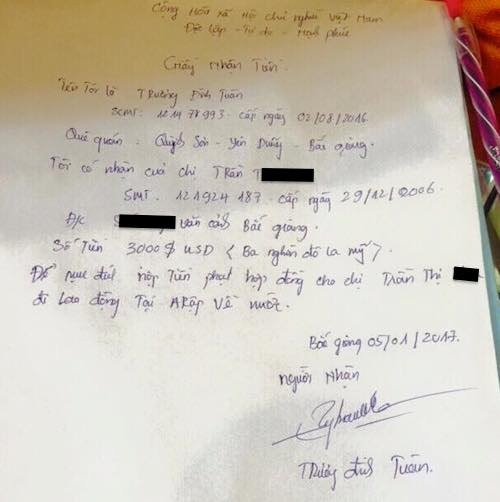 Cộng Hòa xã Hội chủ nghĩa Việt Nam
Độc lập - Tự do - Hạnh phúc
Giấy Nhận Tiền.
Tên Tôi là TRương Đình Tuấn
SCMT: cấp ngày 02/08/2016
Quê quán: Quỳnh Sơn - Yên Dũng - Bắc giang.
Tôi có nhận của chị TRần T
SMT. 121924 187. cấp ngày 29/12/2006
Đ/c văn cảnh Bắc giang.
Số Tiền 3000$ USD < Ba nghìn đô la mỹ >.
Để mục đích nộp Tiền phạt hợp đồng cho chị Trần Thị
đi Lao động Tại ARập Về nước.
Bắc giang 05/01/2017.
Người Nhận
Trương đình Tuấn.